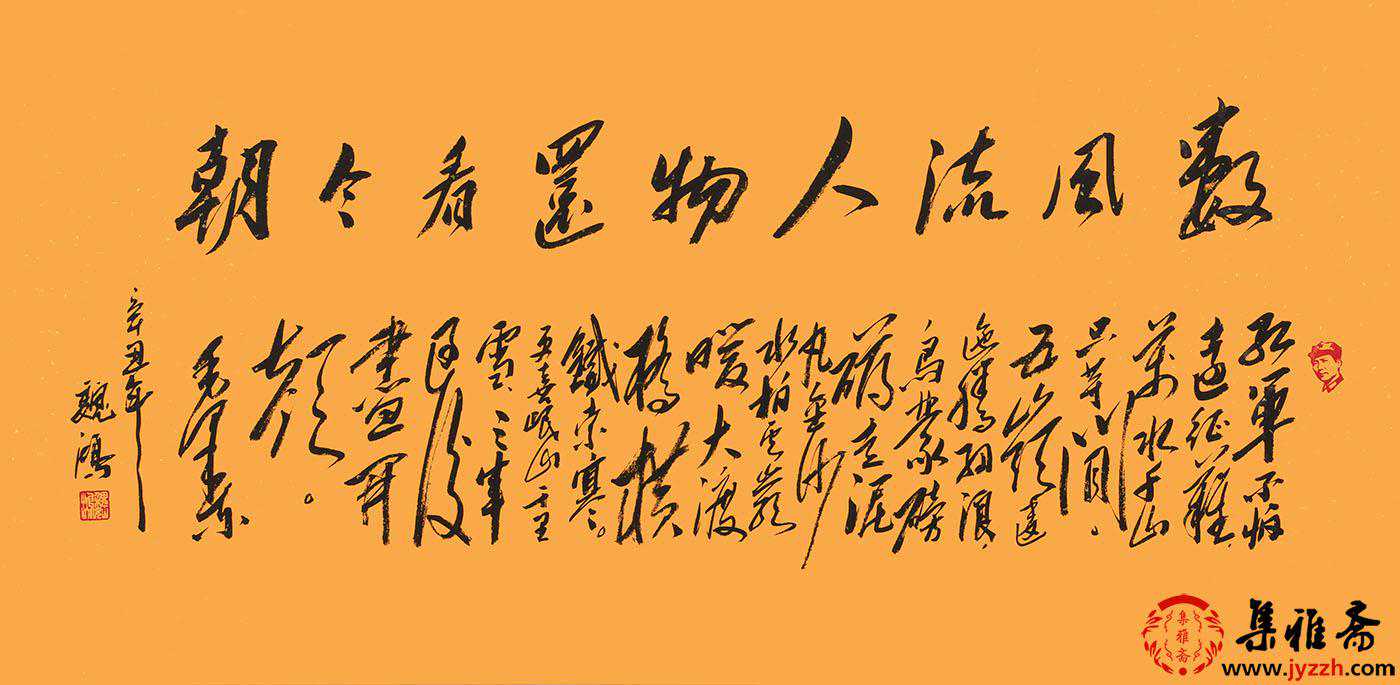 數風流人物還看今朝
紅軍不怕
遠征難,
萬水千山
只等閒。
五嶺逶
迤騰細浪,
烏蒙磅
礴走泥
丸金沙
水拍雲崖
暖大渡
橋橫
鐵索寒。
更喜岷山千里
雪,三軍
過後
盡開
顏。
毛澤東
辛丑年
魏鴻
集雅斋
集雅斋
www.jyzzh.com